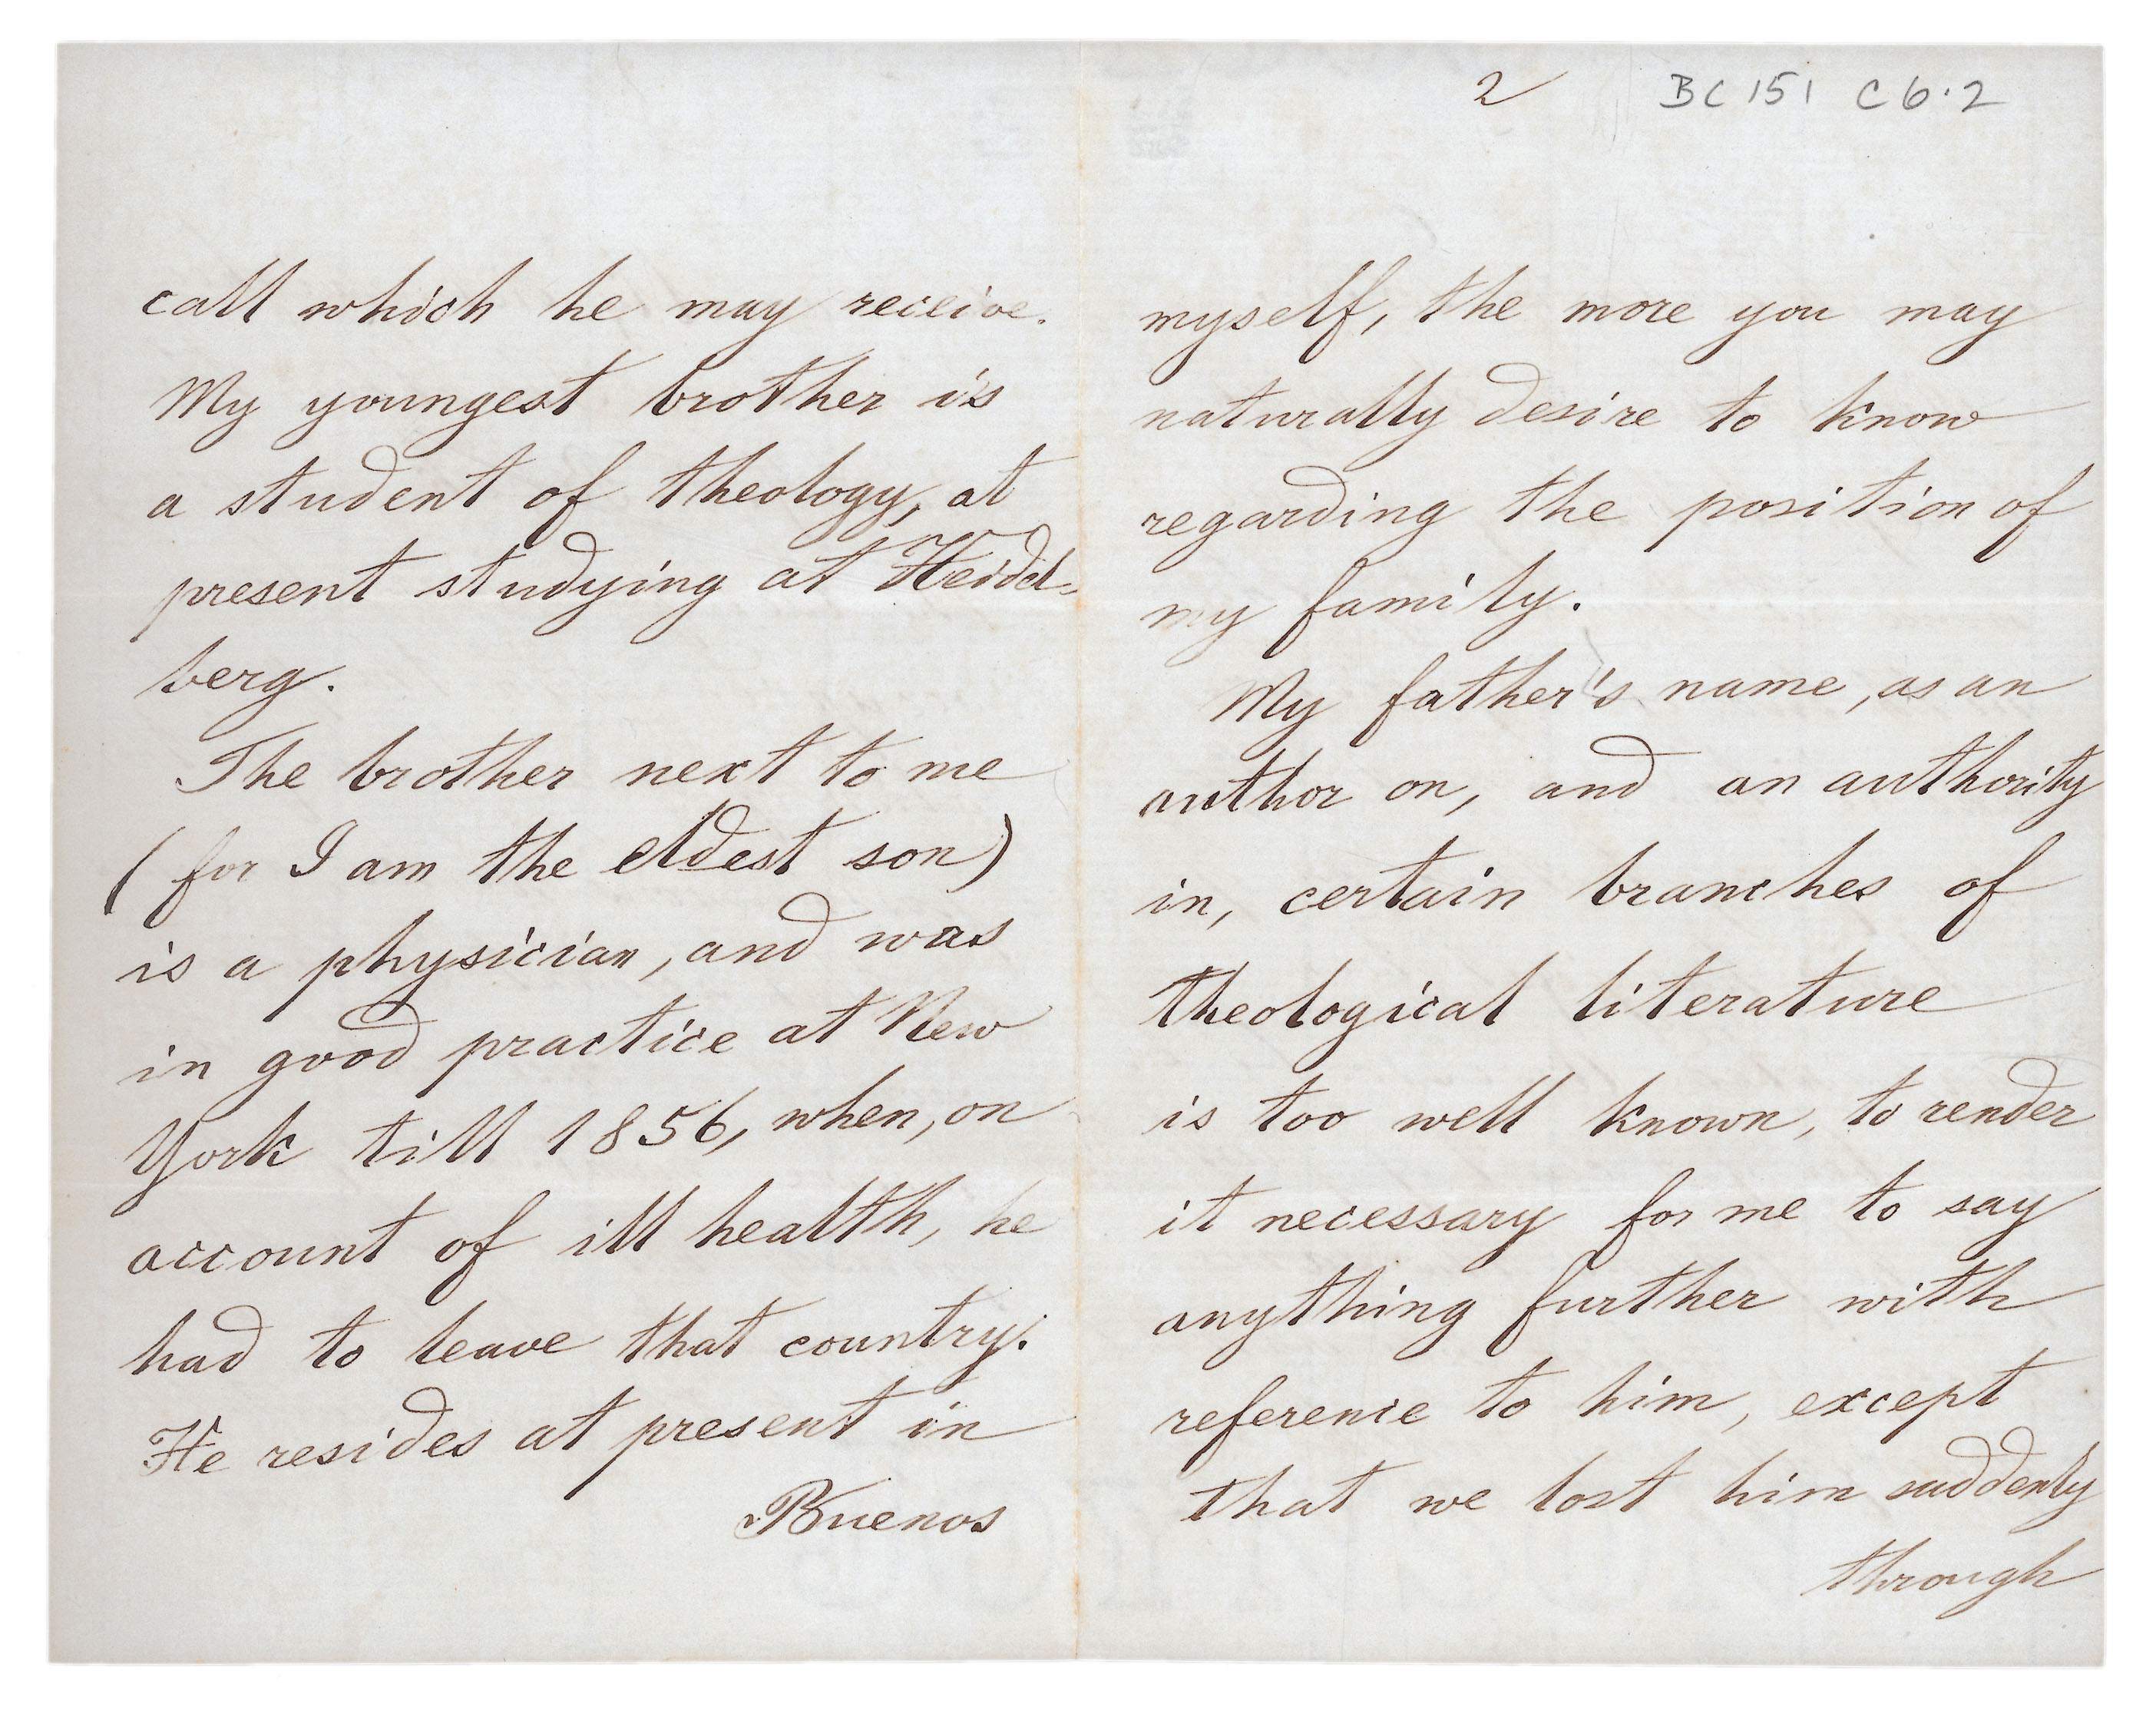 call which he may receive.
My youngest brother is
a student of theology, at
present studying at Heidel-
berg.
The brother next to me
(for I am the eldest son)
is a physician, and was
in good practice at New
York till 1856, when, on
account of ill health, he
had to leave that country.
He resides at present in
Buenos
2 BC 151 C6.2
myself, the more you may
naturally desire to know
regarding the position of
my family.
My father's name, as an
author on, and an authority
in, certain branches of
theological literature
is too well known, to render
it necessary for me to say
anything further with
reference to him, except
that we lost him suddenly
through